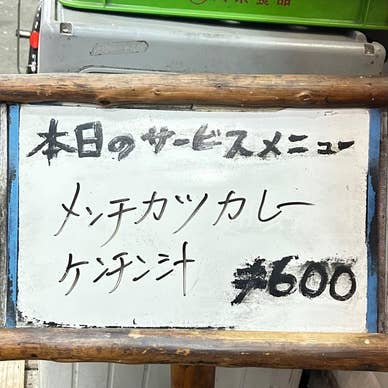 本日のサービスメニュー
メンチカツカレー
ケンチン汁 ¥600